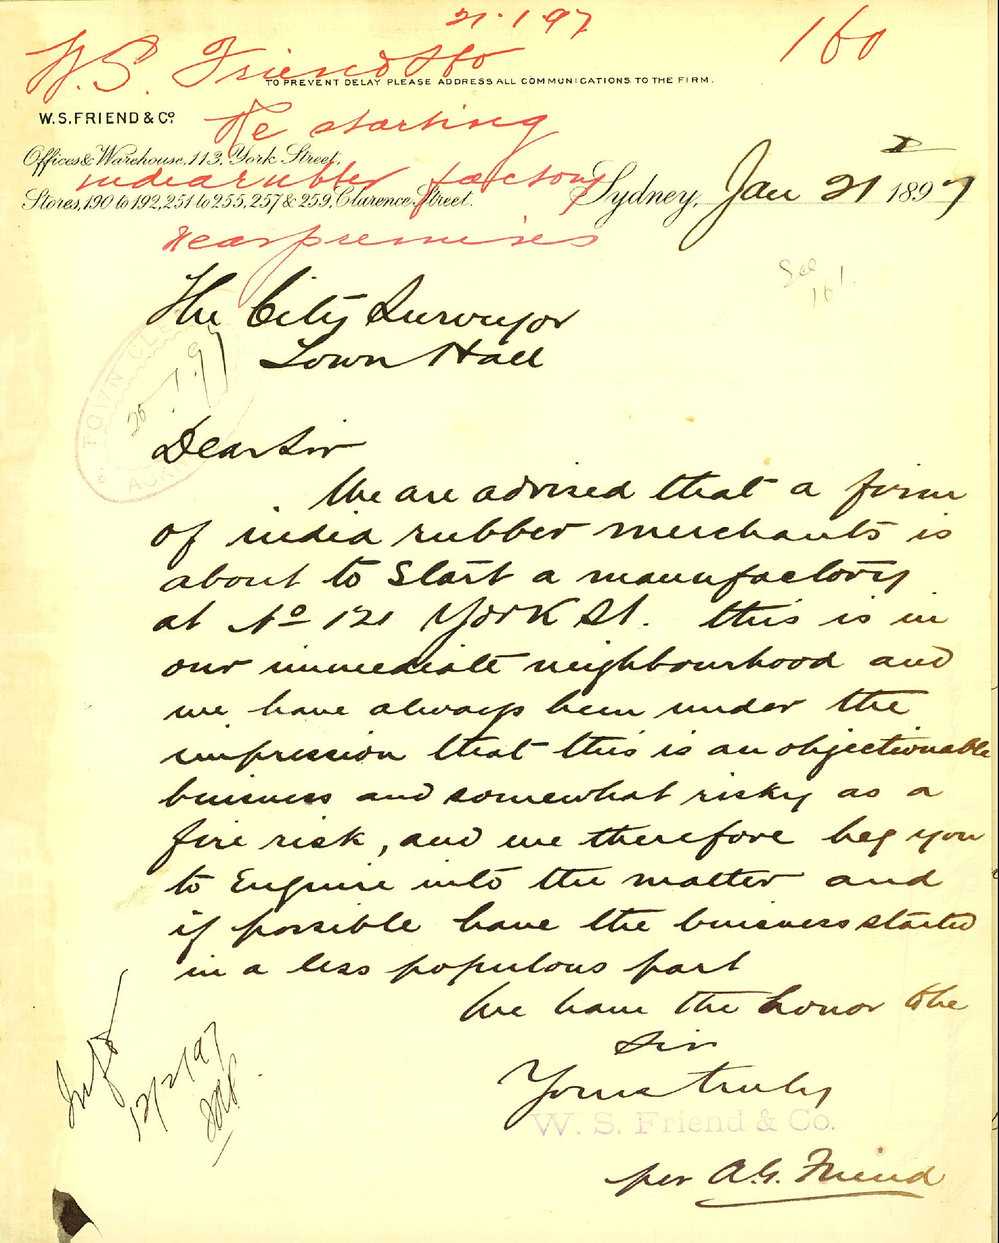 21.1.97
W. S. Friend & Co
160
TO PREVENT DELAY PLEASE ADDRESS ALL COMMUNICATIONS TO THE FIRM.
W. S. FRIEND & Co.
Re starting
Offices & Warehouse, 113, York Street,
indiarubber factory
Stores, 190 to 192, 251 to 255, 257 & 259, Clarence Street.
Sydney, Jan 21 1897
near premises
See
161.
The City Surveyor
Town Hall
TOWN CLERK
25.1.97
Dear Sir
We are advised that a firm
of india rubber merchants is
about to start a manufactory
at No 121 York St. this is in
our immediate neighbourhood and
we have always been under the
impression that this is an objectionable
business and somewhat risky as a
fire risk, and we therefore beg you
to Enquire into the matter and
if possible have the business started
in a less populous part
We have the honor to be
Sir
Yours truly
W. S. Friend & Co.
per A. G. Friend
12/2/97